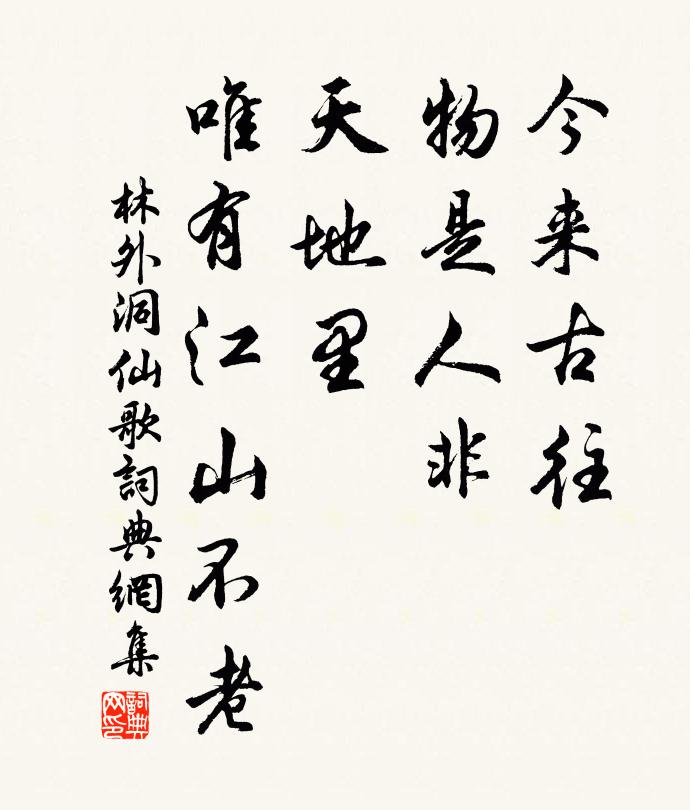 今来古往
物是人非
天地里
唯有江山不老
林外洞仙歌詞典網集
詞典网印